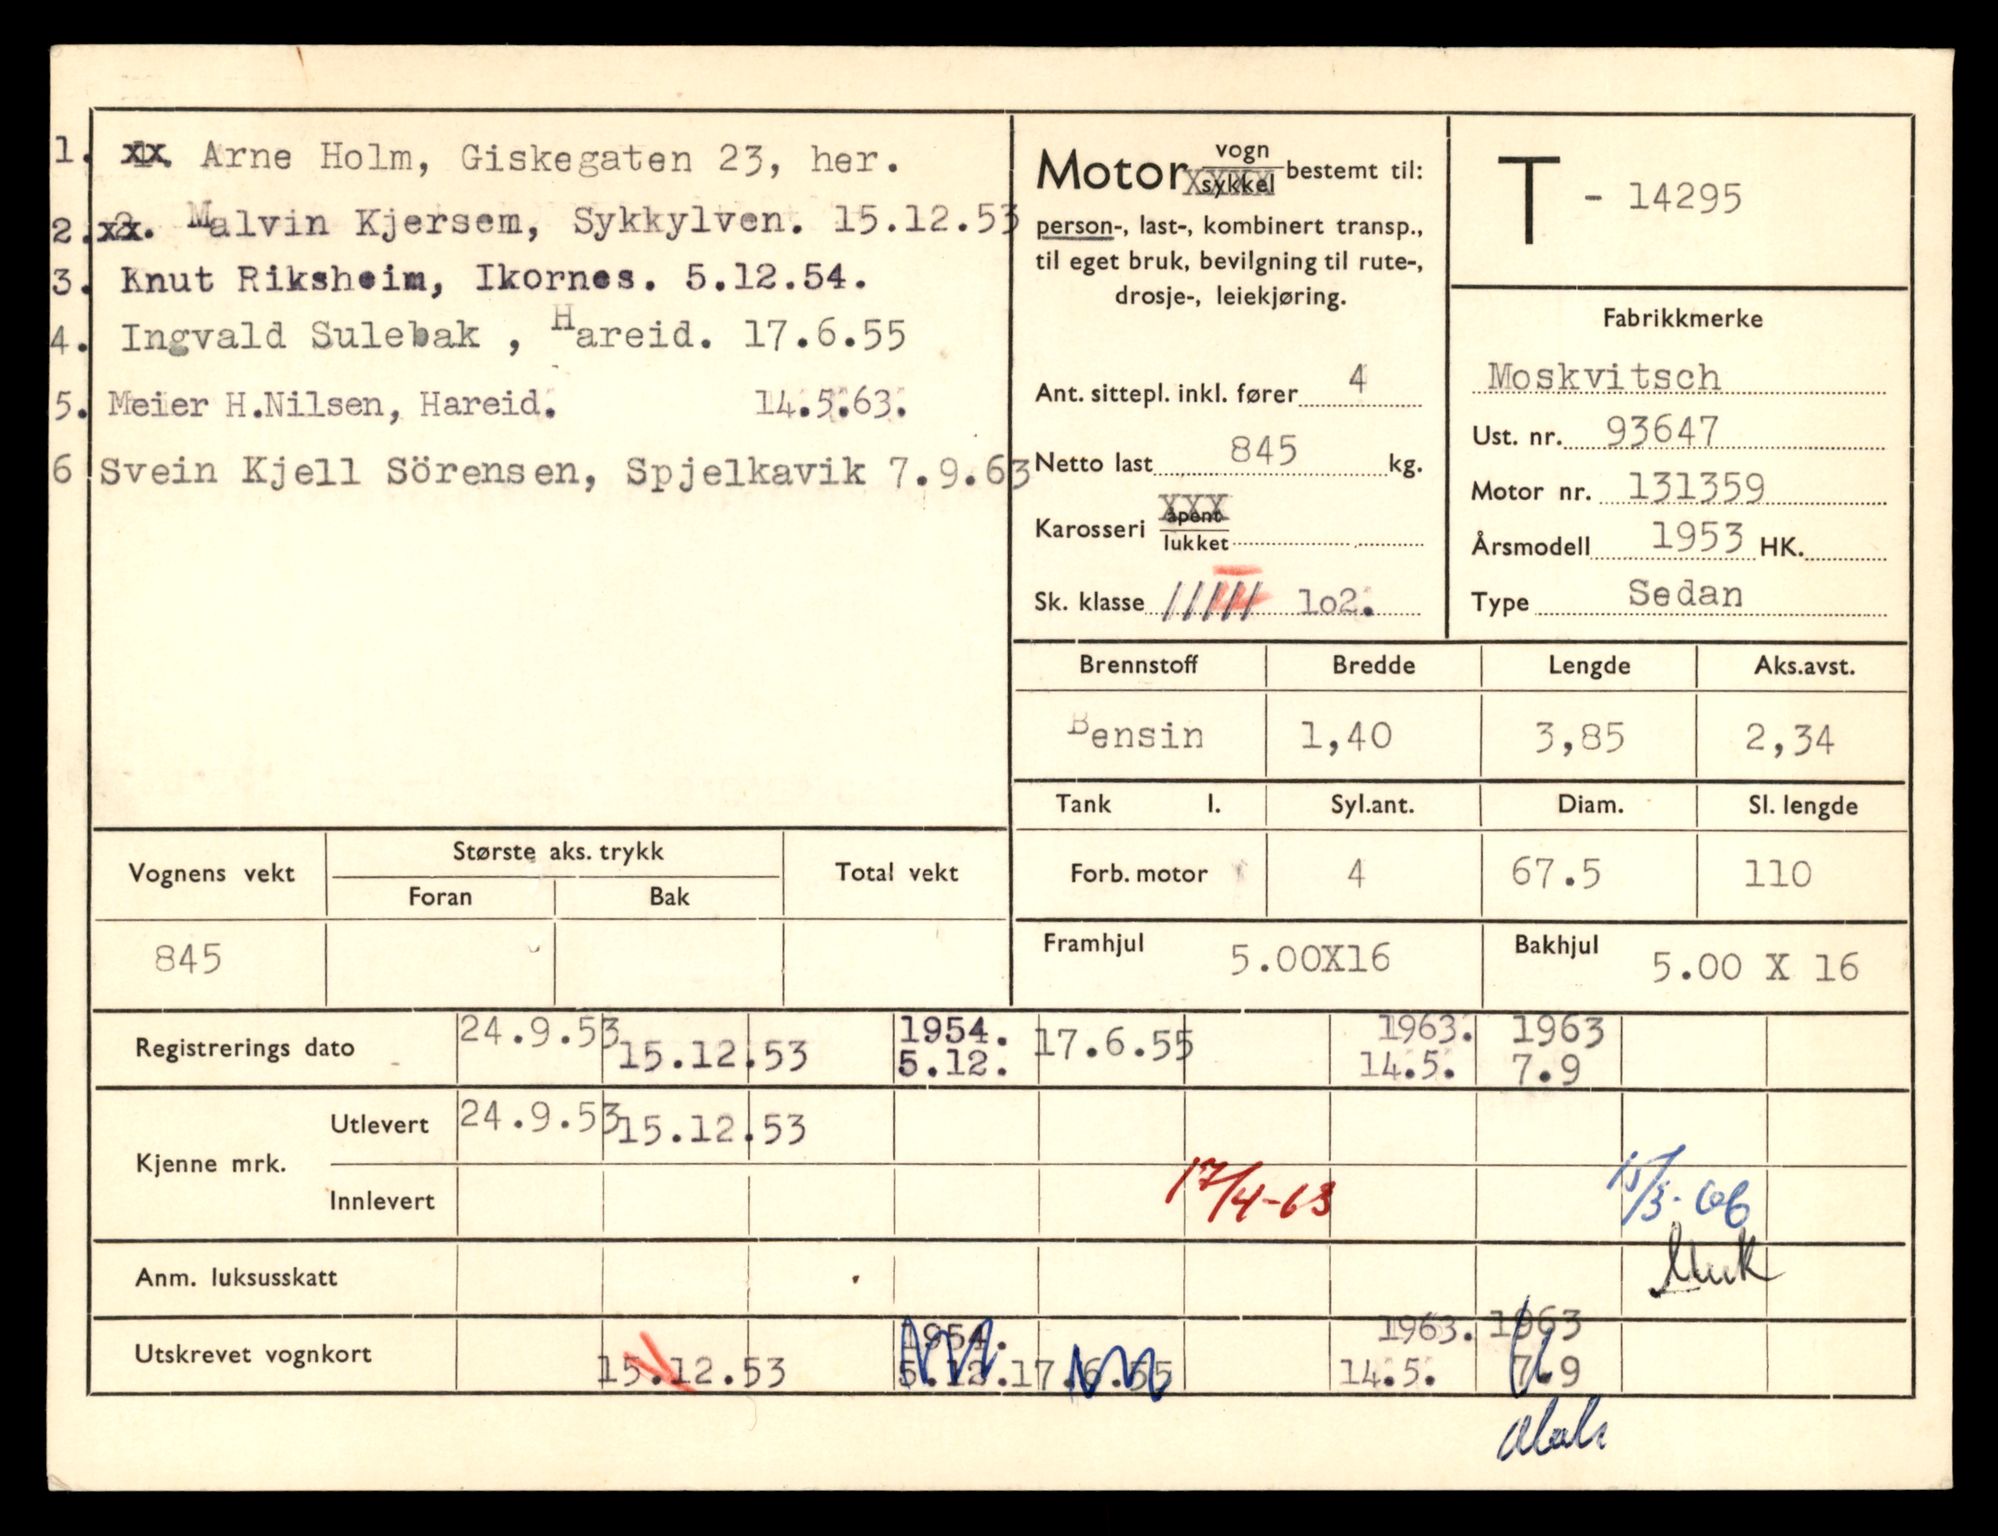 1. xx. Arne Holm, Giskegaten 23, her.
2. xx. Malvin Kjersem, Sykkylven. 15.12.53
3. Knut Riksheim, Ikornes. 5.12.54.
4. Ingvald Sulebak , Hareid. 17.6.55
5. Meier H.Nilsen, Hareid. 14.5.63.
6 Svein Kjell Sörensen, Spjelkavik 7.9.63
Motor vogn
sykkel bestemt til:
person-, last-, kombinert transp.,
til eget bruk, bevilgning til rute-,
drosje-, leiekjøring.
Ant. sittepl. inkl. fører 4
Netto last 845 kg.
Karosseri åpent
lukket
Sk. klasse 1o2.
T - 14295
Fabrikkmerke
Moskvitsch
Ust. nr. 93647
Motor nr. 131359
Årsmodell 1953 HK.
Type Sedan
Brennstoff Bredde Lengde Aks.avst.
Bensin 1,40 3,85 2,34
Tank l. Syl.ant. Diam. Sl. lengde
Forb. motor 4 67.5 110
Framhjul 5.00X16 Bakhjul 5.00 X 16
Vognens vekt Største aks. trykk Total vekt
Foran Bak
845
Registrerings dato 24.9.53 15.12.53 1954. 5.12. 17.6.55 1963. 14.5. 1963 7.9
Kjenne mrk. Utlevert 24.9.53 15.12.53
Innlevert 17/4-63 15/3-66
Anm. luksusskatt
Utskrevet vognkort 15.12.53 1954. 5.12. 17.6.55 1963. 14.5. 1963 7.9